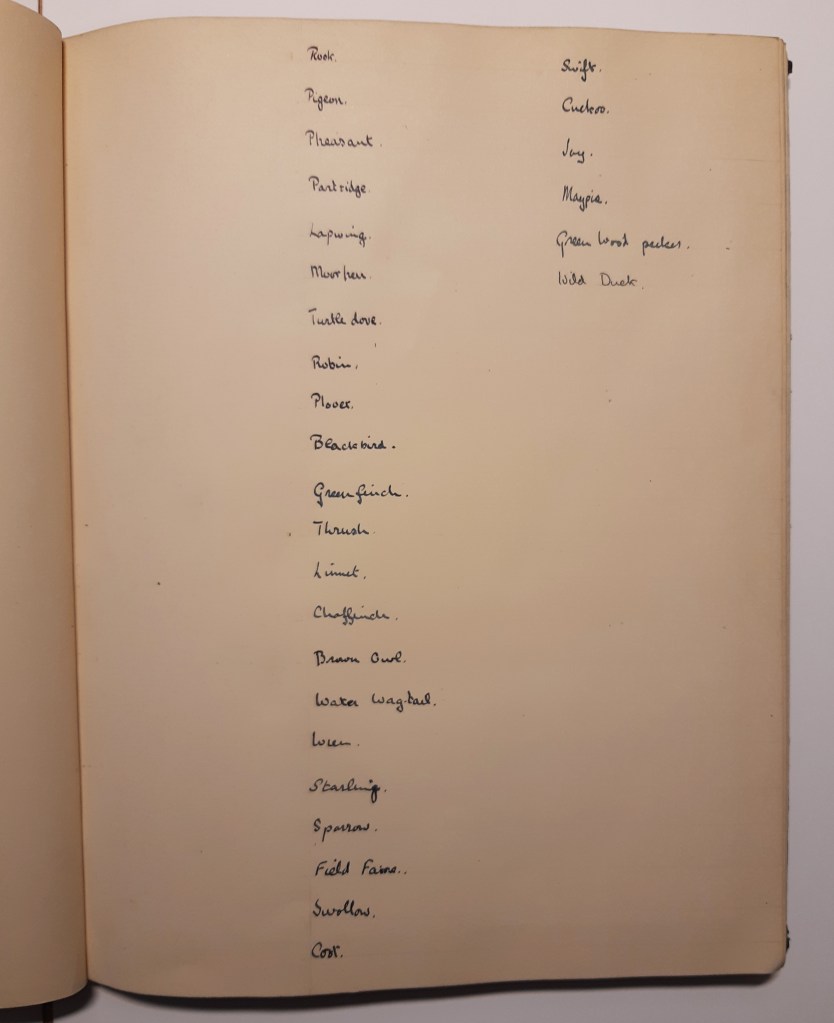 Rook.
Pigeon.
Pheasant.
Partridge.
Lapwing.
Moorhen.
Turtle dove.
Robin.
Plover.
Blackbird.
Greenfinch.
Thrush.
Linnet.
Chaffinch.
Brown Owl.
Water Wagtail.
Wren.
Starling.
Sparrow.
Field Fare.
Swallow.
Coot.
Swift.
Cuckoo.
Jay.
Magpie.
Green Wood pecker.
Wild Duck.